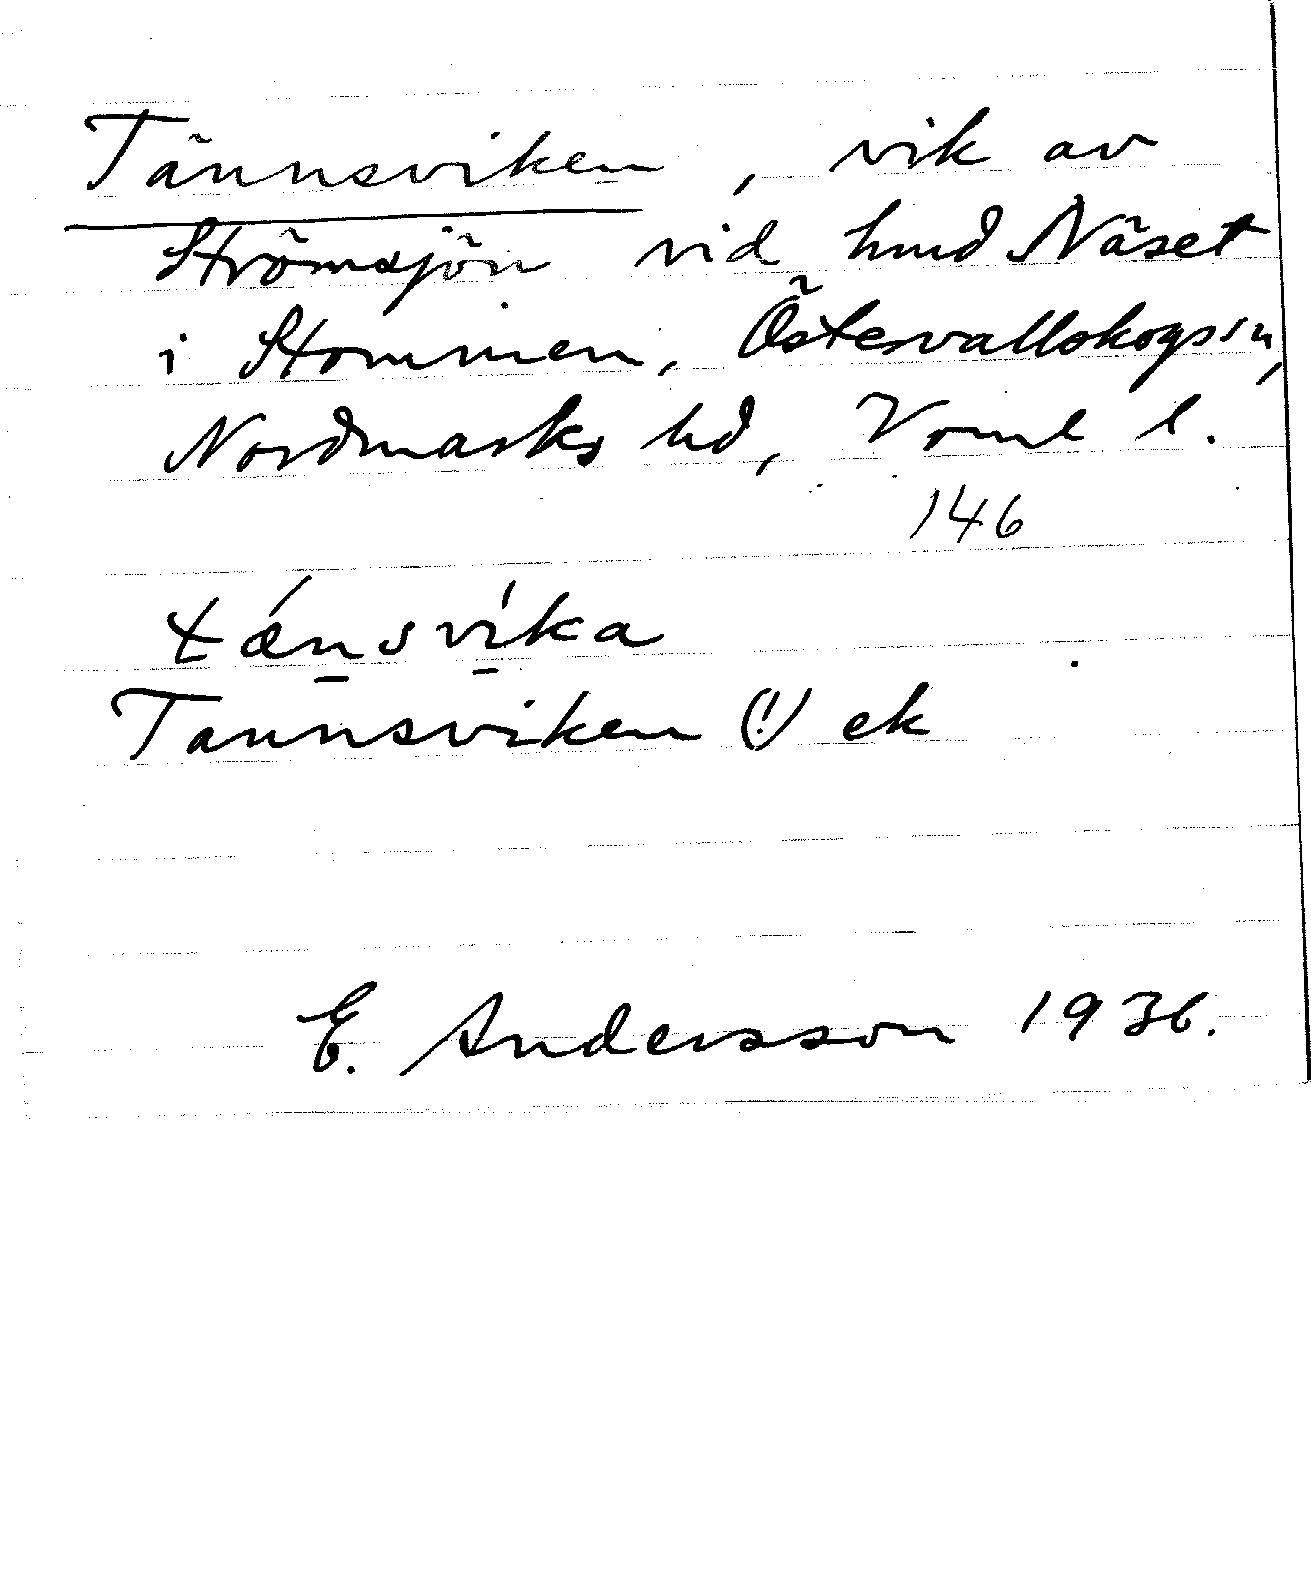 Tännsviken, vik av
Strömsjön vid hmd Näset
i Stommen, Östervallskogs sn,
Nordmarks hd, Vrml l.
146
tǽn̠sví̠ka
Tannsviken (!) ek
E. Andersson 1936.